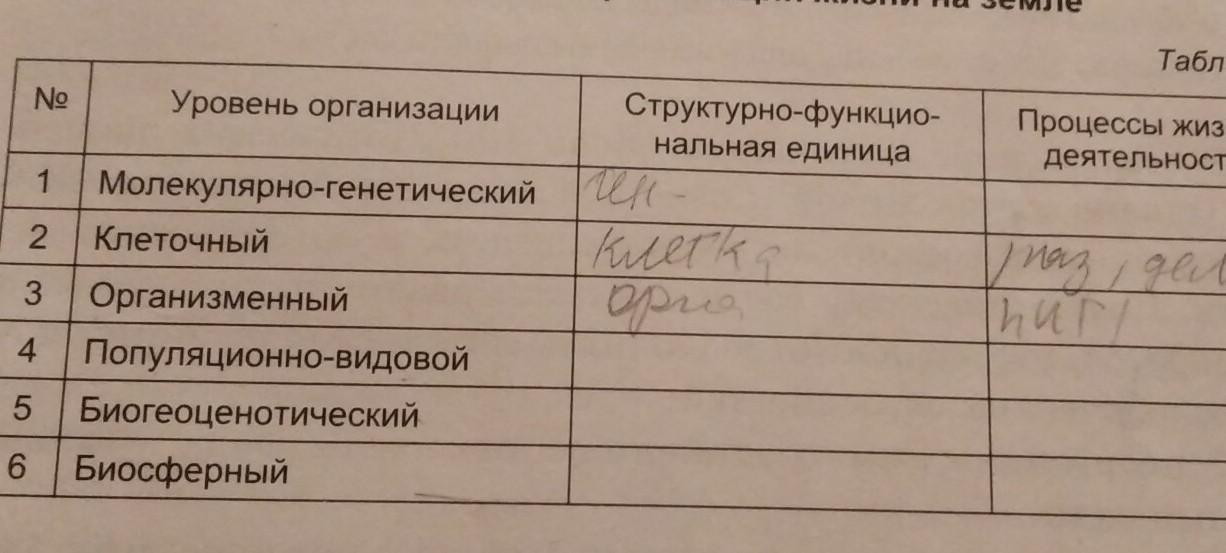 жизни на земле
Табл
№ Уровень организации Структурно-функцио-
нальная единица Процессы жиз
деятельност
1 Молекулярно-генетический ген -
2 Клеточный клетка дел
3 Организменный орга пит
4 Популяционно-видовой
5 Биогеоценотический
6 Биосферный